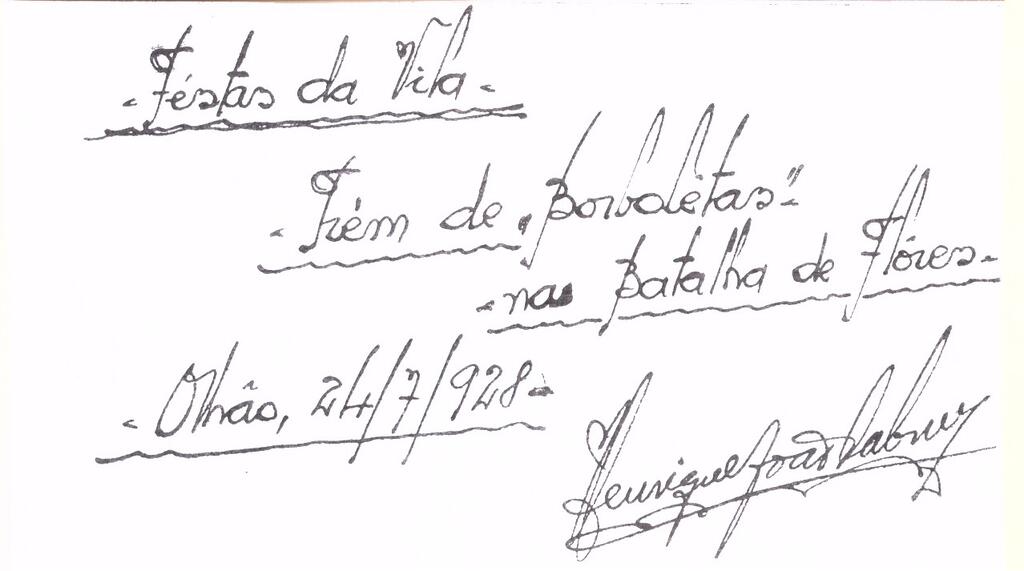 - Féstas da Vila -
- Trém de "Borbolêtas" -
- na Batalha de Flôres -
- Olhão, 24/7/928 -
Henrique João